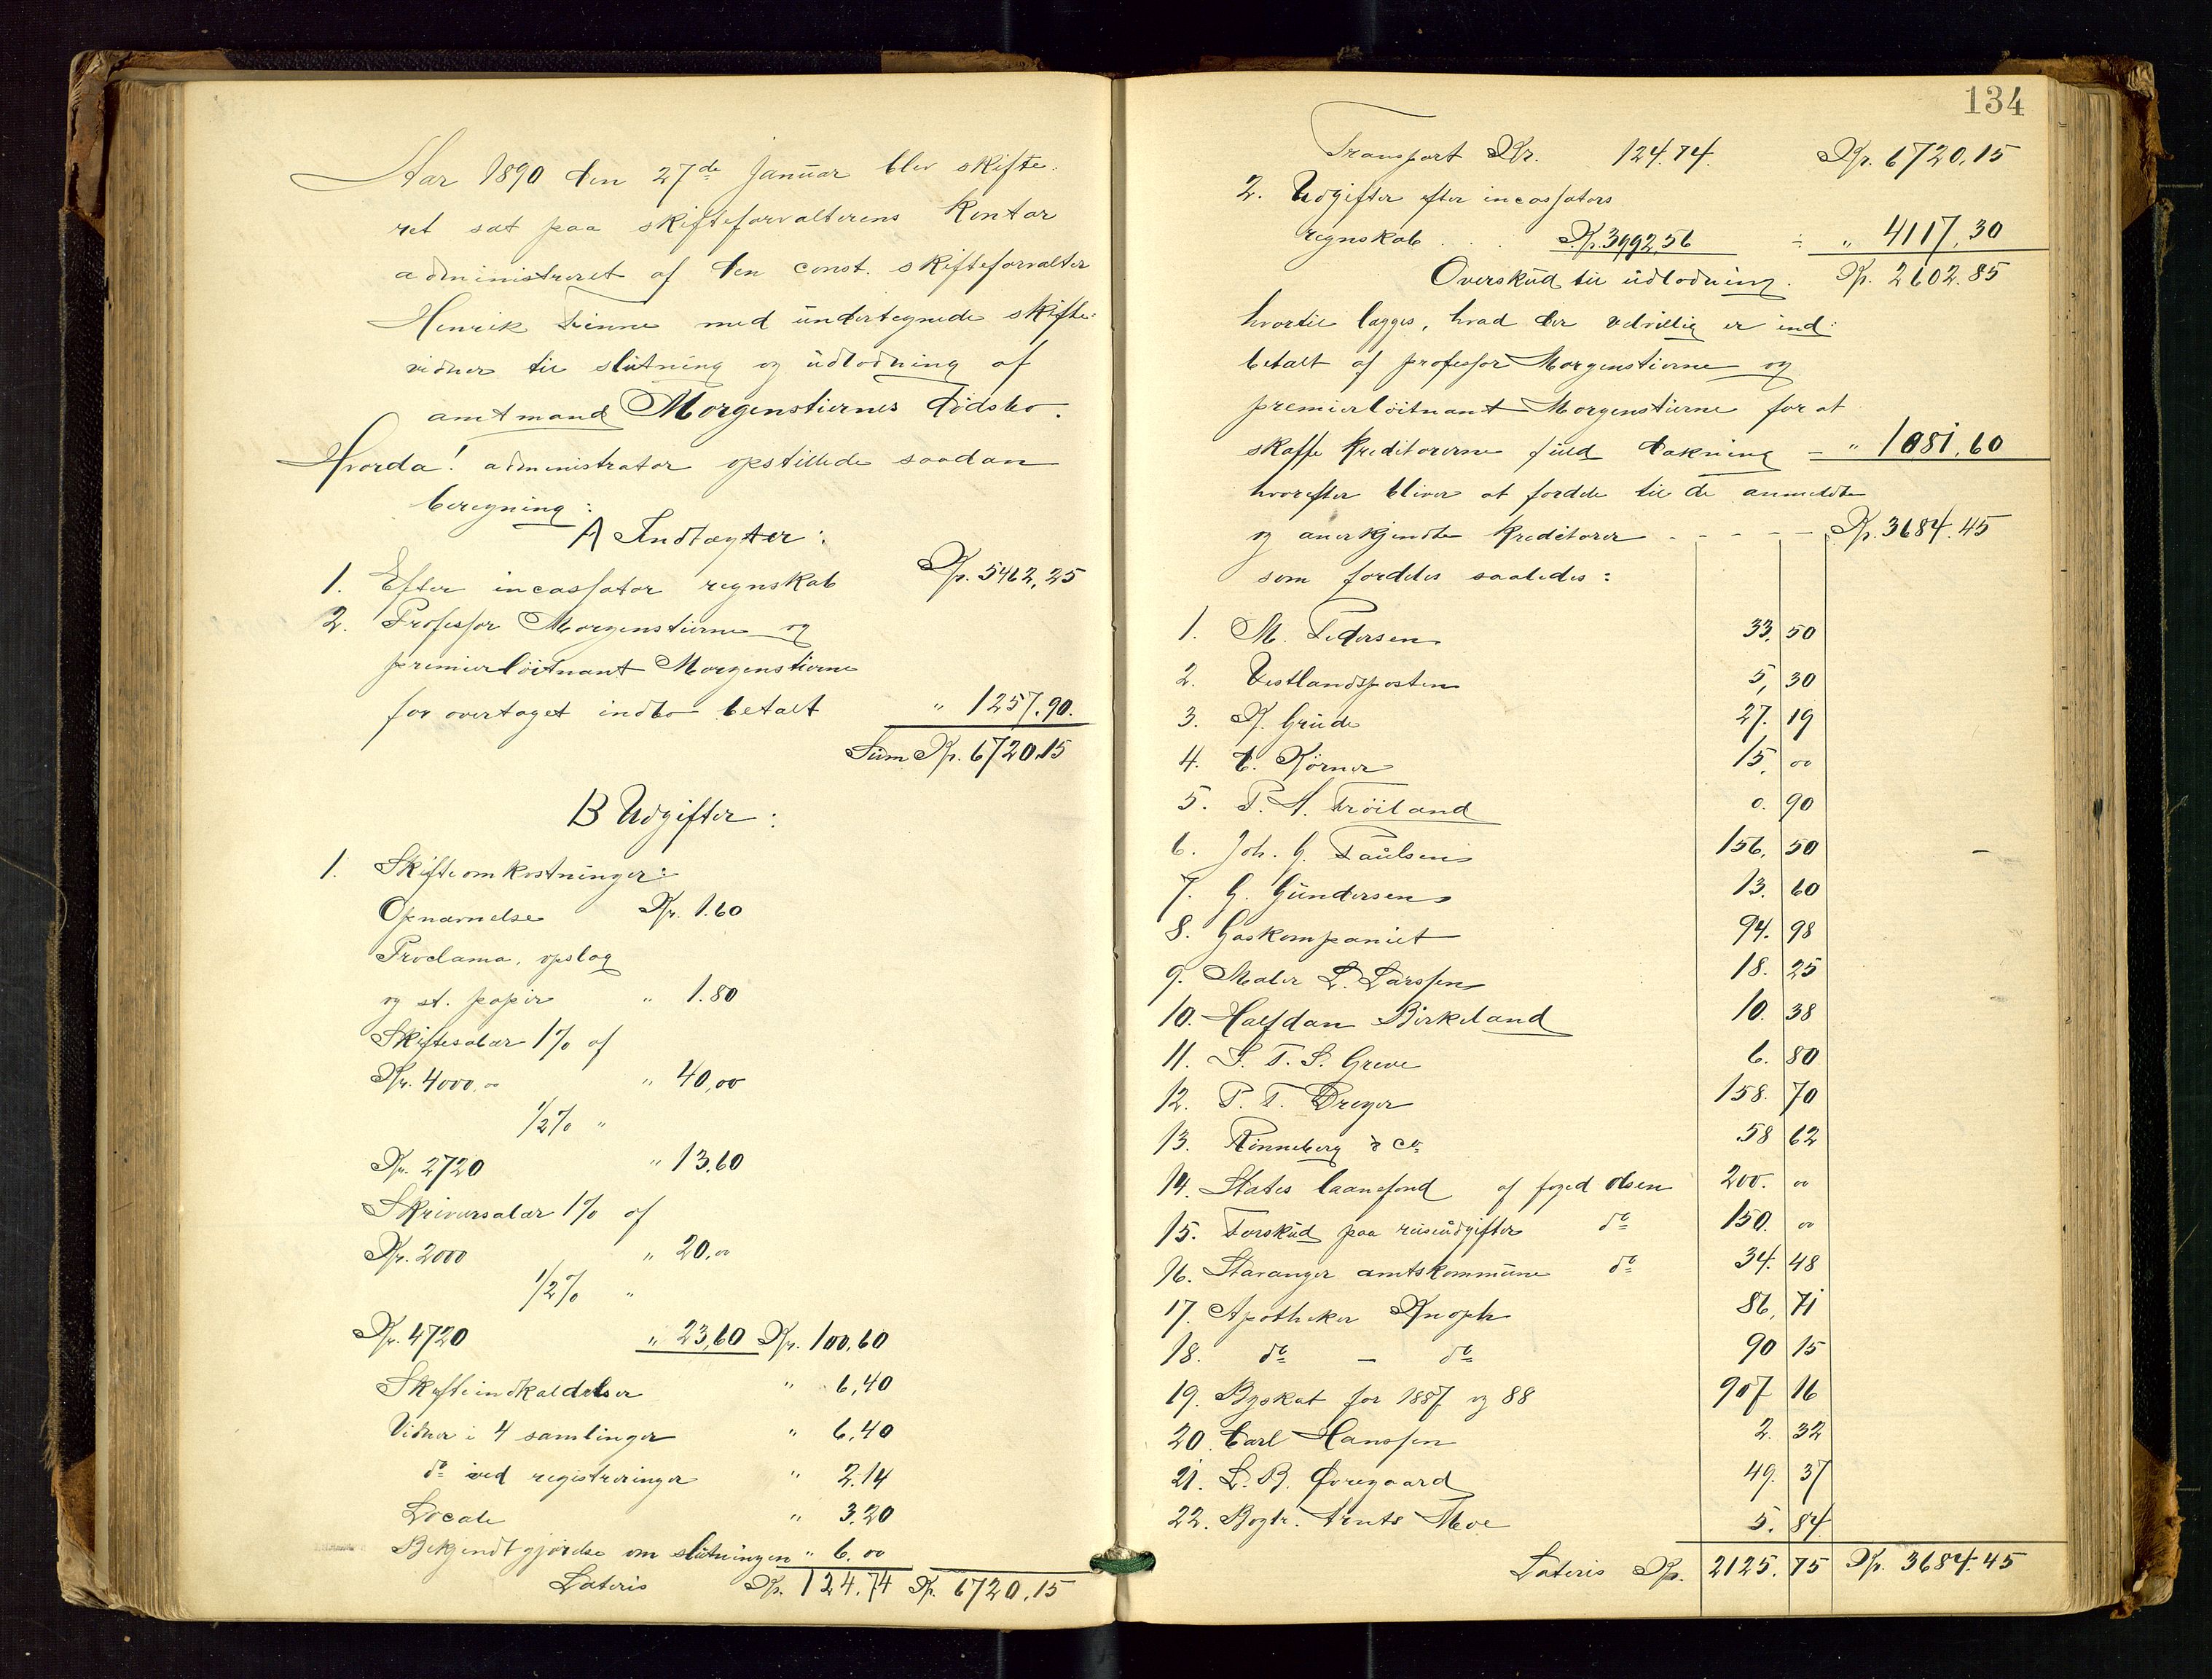 Aar 1890 den 27de Januar blev skifte-
ret sat paa skifteforvalterens kontor
administreret af den const. skifteforvalter
Henrik Finne med undertegnede skifte-
vidner til slutning og udlodning af
amtmand Morgenstiernes dødsbo.
Hvorda! administrator opstillede saadan
beregning:
A Indtægter:
1. Efter incassator regnskab Kr. 5462,25
2. Professor Morgenstierne og
premierløitnant Morgenstierne
for overtaget indbo betalt " 1257.90.
Sum Kr. 6720.15
B Udgifter:
1. Skifteomkostninger:
Opnævnelse Kr. 1.60
Proclama, opslag
og st. papir " 1.80
Skiftesalær 1% af
Kr. 4000.00 " 40,00
1/2% "
Kr. 2720 " 13.60
Skriversalær 1% af
Kr. 2000 " 20.00
1/2% "
Kr. 4720 " 23,60 Kr. 100,60
Skifteindkaldelser " 6,40
Vidner i 4 samlinger " 6,40
do ved registreringer " 2.14
Locale " 3.20
Bekjendtgjørelse om slutningen " 6.00
Lateris Kr. 124.74 Kr. 6720.15
134
Transport Kr. 124.74. Kr. 6720,15
2. Udgifter efter incassators
regnskab . . Kr. 3992,56 ÷ " 4117,30
Overskud til udlodning. Kr. 2602.85
hvortil lægges, hvad der velvillig er ind-
betalt af professor Morgenstierne og
premierløitnant Morgenstierne for at
skaffe kreditorerne fuld dækning – " 1081,60
hvorefter bliver at fordele til de anmeldte
og anerkjendte kreditorer - - - - Kr. 3684.45
som fordeles saaledes:
1. M. Pedersen 33. 50
2. Vestlandsposten 5, 30
3. K. Grude 27. 19
4. C. Kørner 15. 00
5. P. A. Frøiland 0. 90
6. Joh. G. Paulsen 156. 50
7. G. Gundersen 13. 60
8. Gaskompaniet 94. 98
9. Maler L. Larssen 18. 25
10. Halfdan Birkeland 10. 38
11. S. T. S. Greve 6. 80
12. P. T. Dreyer 158. 70
13. Rinneberg & Co. 58 62
14. Statens laanefond af foged Olsen 200. 00
15. Forskud paa reiseudgifter do 150. 00
16. Stavanger amtskommune do 34. 48
17. Apotheker Knoph 86, 71
18. do – do 90 15
19. Byskat for 1887 og 88 907 16
20. Carl Hanssen 2. 32
21. L. B. Øvregaard 49. 37
22. Bogtr. Arnts Moe 5. 84
Lateris Kr. 2125. 75 Kr. 3684.45